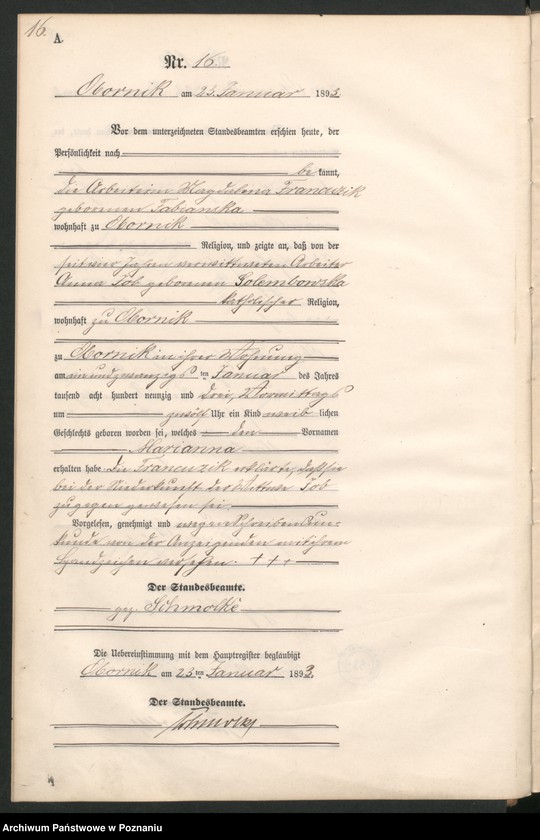 16.
A.
Nr. 16
Obornik am 23. Januar 1893.
Vor dem unterzeichneten Standesbeamten erschien heute, der
Persönlichkeit nach
be kannt,
die Arbeiterin Magdalena Francuzik
geborenen Fabianska
wohnhaft zu Obornik
Religion, und zeigte an, daß von der
seit vier Jahren verwittweten Arbeiter
Anna Sob geborenen Golembowska
katholischer Religion,
wohnhaft zu Obornik
zu Obornik in ihrer Wohnung
am ein und zwanzigs ten Januar des Jahres
tausend acht hundert neunzig und drei, Vormittags
um zwölf Uhr ein Kind weib lichen
Geschlechts geboren worden sei, welches den Vornamen
Marianna
erhalten habe. Die Francuzik erklärte, daß sie
bei der Niederkunft der Wittwe Sob
zugegen gewesen sei.
Vorgelesen, genehmigt und wegen Schreibensun-
kunde von der Anzeigenden mit ihrem
Handzeichen versehen. + + +
Der Standesbeamte.
gez. Schmolke
Die Uebereinstimmung mit dem Hauptregister beglaubigt
Obornik am 23 ten Januar 1893.
Der Standesbeamte.
Archiwum Państwowe w Poznaniu